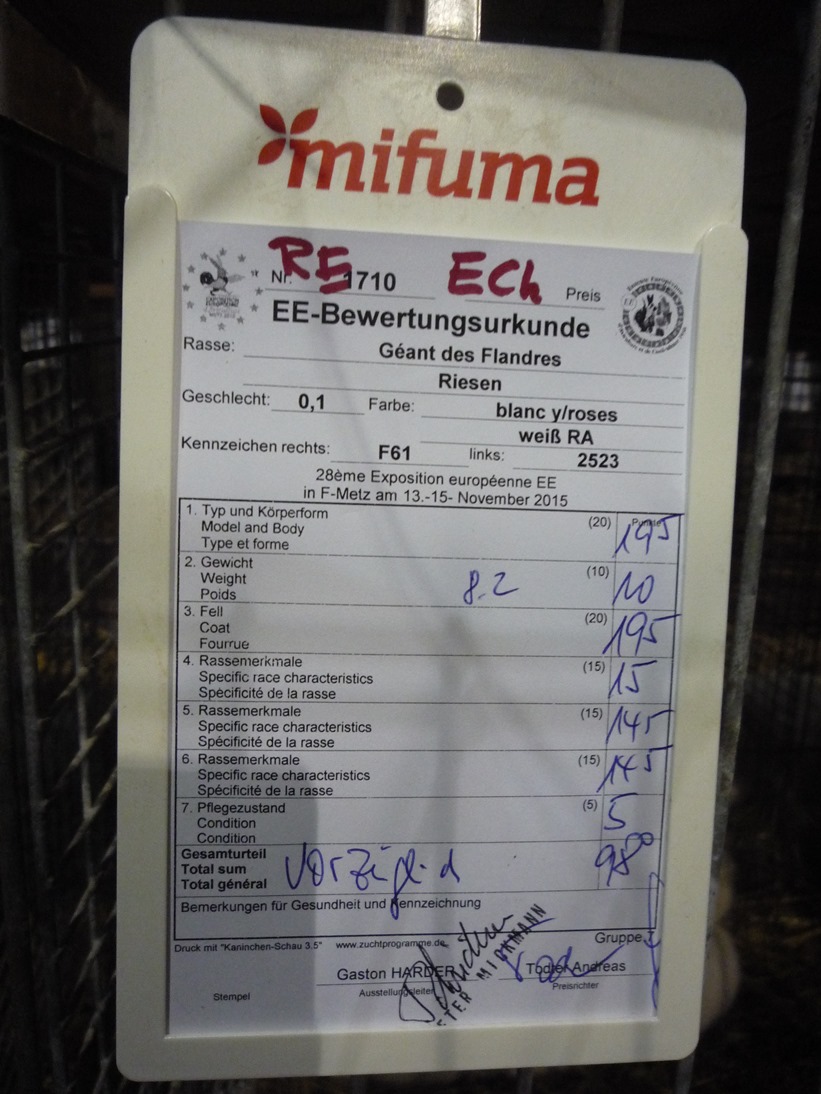 mifuma
RE ECh
Nr. 1710 Preis
EE-Bewertungsurkunde
Rasse: Géant des Flandres
Riesen
Geschlecht: 0,1 Farbe: blanc y/roses
weiß RA
Kennzeichen rechts: F61 links: 2523
28ème Exposition européenne EE
in F-Metz am 13.-15- November 2015
1. Typ und Körperform (20) Punkte
Model and Body 195
Type et forme
2. Gewicht (10)
Weight 8.2 10
Poids
3. Fell (20)
Coat 195
Fourrue
4. Rassemerkmale (15)
Specific race characteristics 15
Spécificité de la rasse
5. Rassemerkmale (15)
Specific race characteristics 145
Spécificité de la rasse
6. Rassemerkmale (15)
Specific race characteristics 145
Spécificité de la rasse
7. Pflegezustand (5)
Condition 5
Condition
Gesamturteil
Total sum Vorzüglich 98⁰
Total général
Bemerkungen für Gesundheit und Kennzeichnung
Gruppe
Druck mit "Kaninchen-Schau 3.5" www.zuchtprogramme.de
Gaston HARDER Tödter Andreas
Stempel Ausstellungsleiter Preisrichter